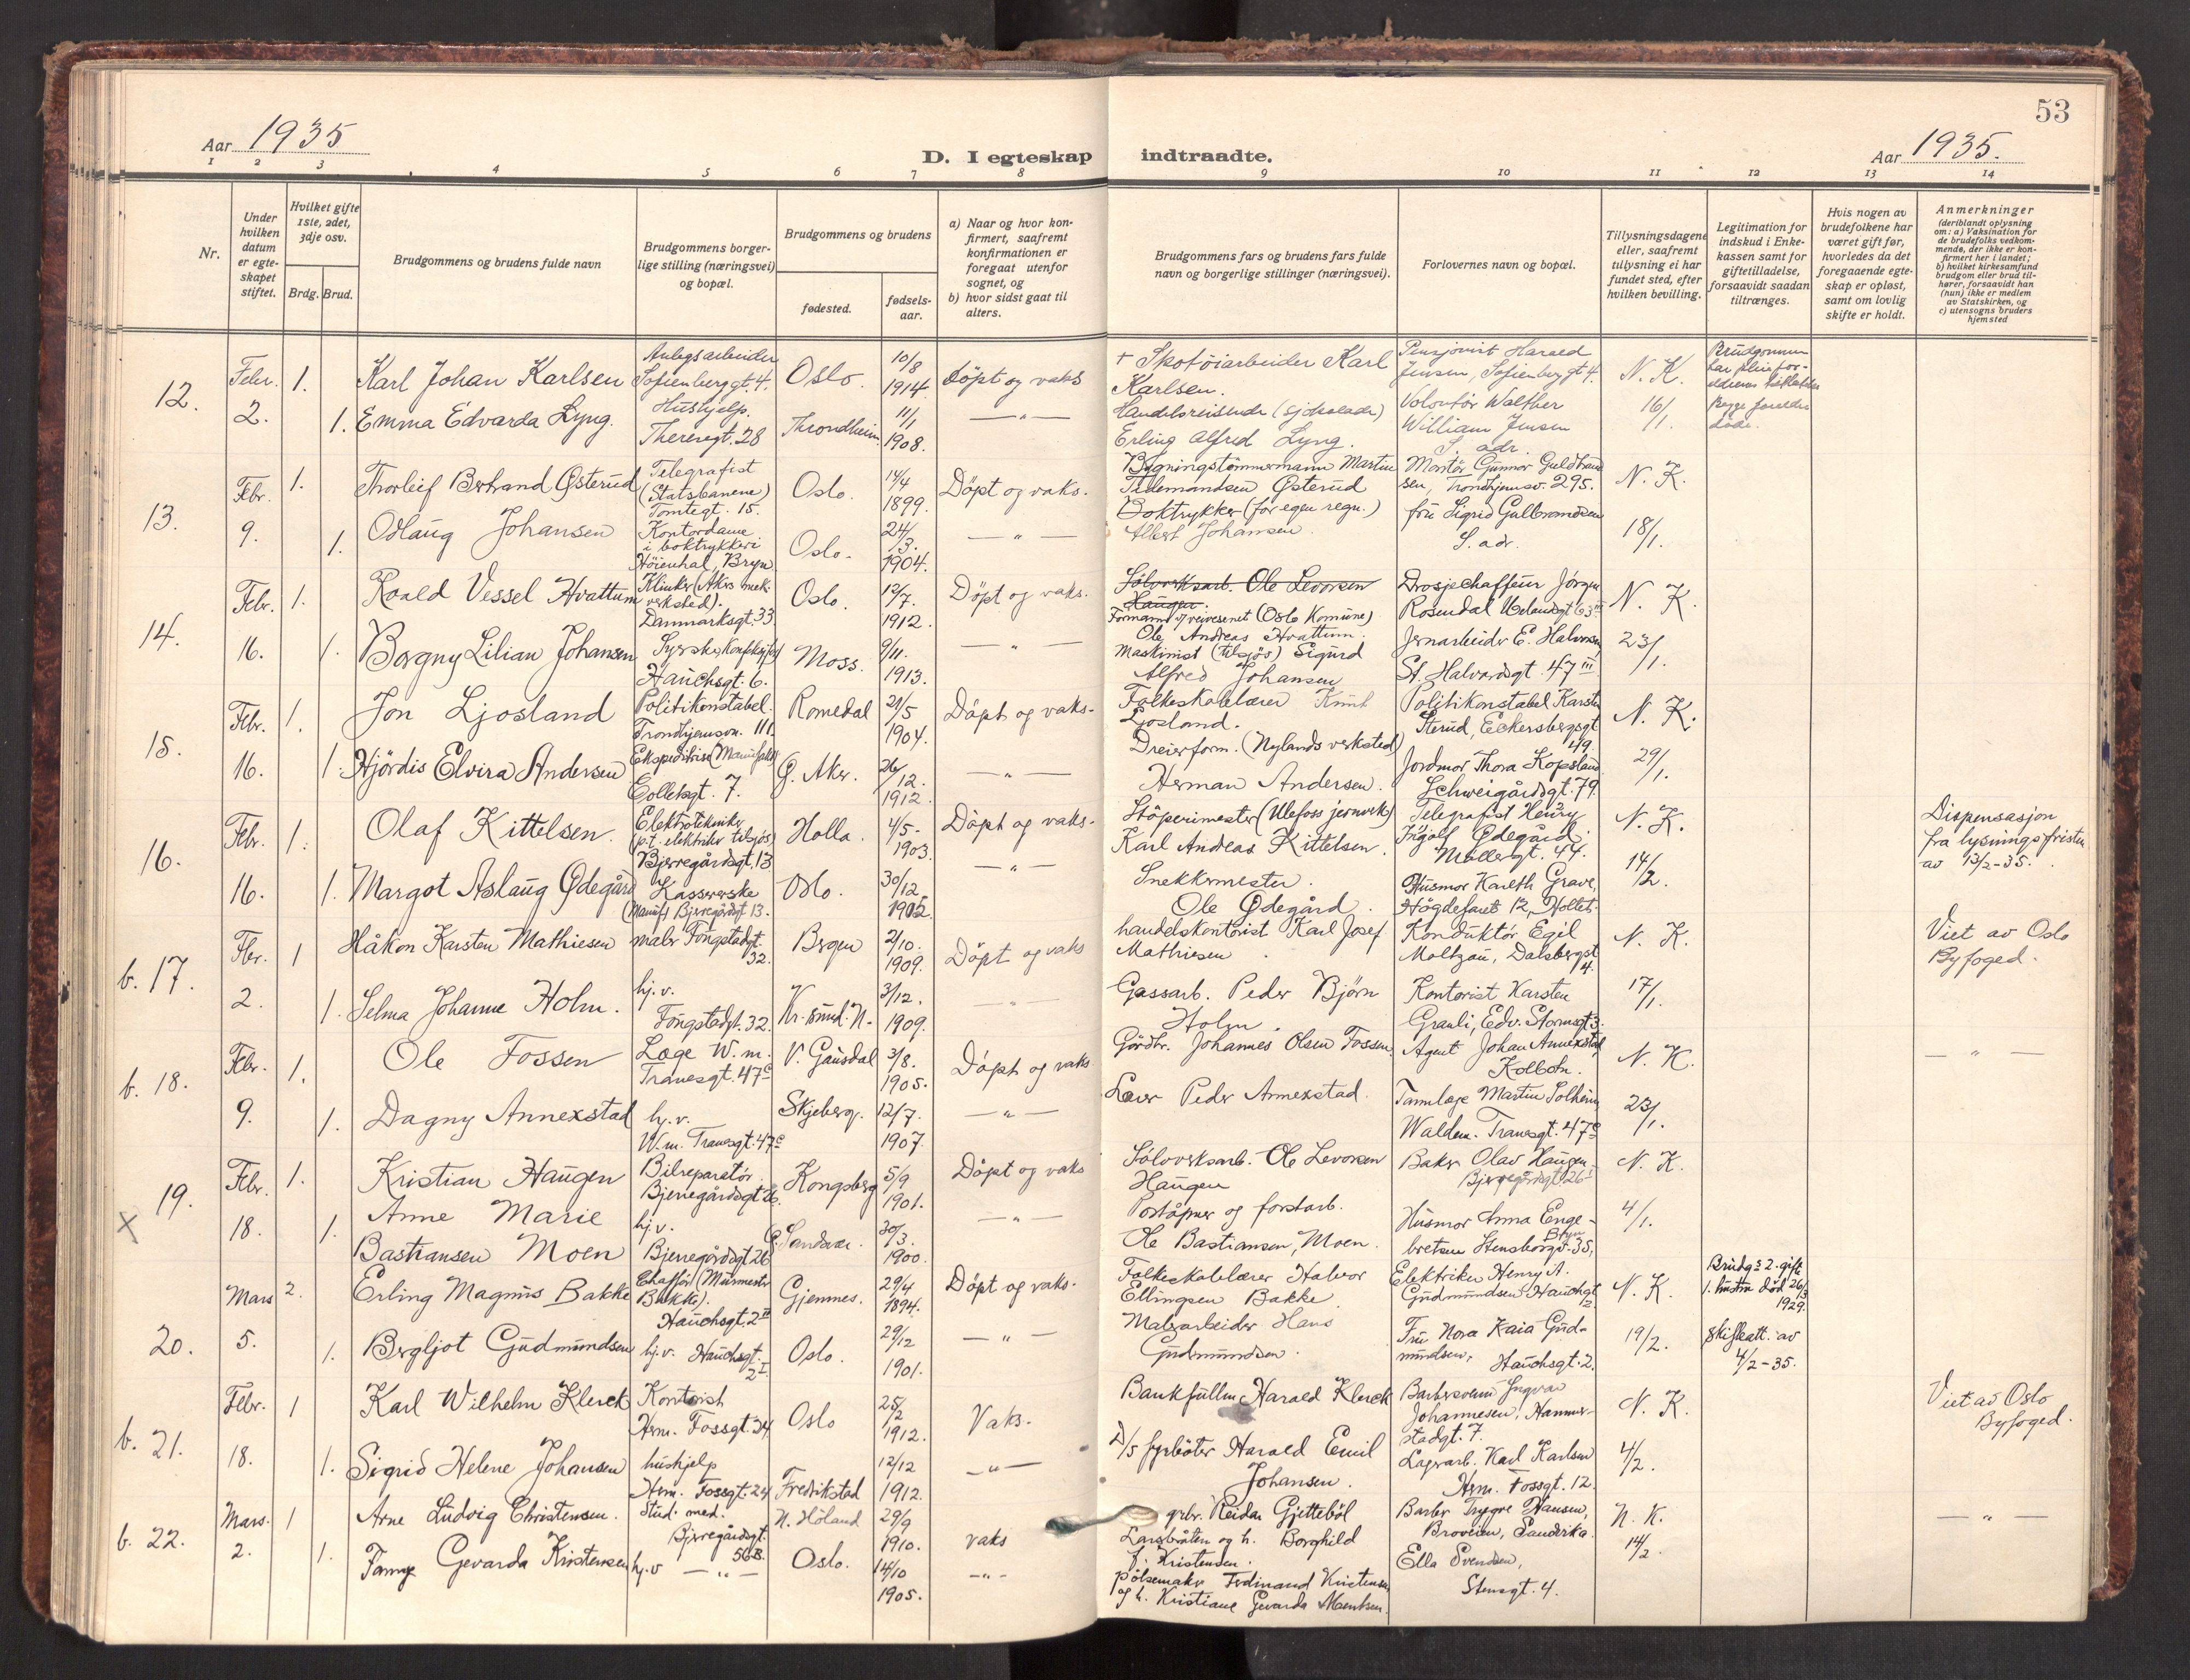 53
Aar 1935
D. I egteskap indtraadte.
Aar 1935.
1 2 3 4 5 6 7 8 9 10 11 12 13 14
Nr.
Under hvilken datum er egteskapet stiftet.
Hvilket gifte 1ste, 2det, 3dje osv.
Brdg. Brud.
Brudgommens og brudens fulde navn
Brudgommens borgerlige stilling (næringsvei) og bopæl.
Brudgommens og brudens
fødested.
fødselsaar.
a) Naar og hvor konfirmert, saafremt konfirmationen er foregaat utenfor sognet, og
b) hvor sidst gaat til alters.
Brudgommens fars og brudens fars fulde navn og borgerlige stillinger (næringsvei).
Forlovernes navn og bopæl.
Tillysningsdagene eller, saafremt tillysning ei har fundet sted, efter hvilken bevilling.
Legitimation for indskud i Enkekassen samt for giftetilladelse, forsaavidt saadan tiltrænges.
Hvis nogen av brudefolkene har været gift før, hvorledes da det foregaaende egteskap er opløst, samt om lovlig skifte er holdt.
Anmerkninger
(deriblandt oplysning om: a) Vaksination for de brudefolks vedkommende, der ikke er konfirmert her i landet;
b) hvilket kirkesamfund brudgom eller brud tilhører, forsaavidt han (hun) ikke er medlem av Statskirken, og
c) utensogns bruders hjemsted
12. Febr. 2.
1. Karl Johan Karlsen
Anlegsarbeider Sofienberggt. 4.
Oslo. 10/8 1914. Döpt og vaks
+ Skotöiarbeider Karl Karlsen.
Harald Jensen, Sofienberggt 4.
N. K.
1. Emma Edvarda Lyng.
Hushjelp. Theresegt. 28
Throndheim. 11/1 1908. — " —
Handelsreisende (sjokolade) Erling Alfred Lyng.
Volontör Walther William Jensen S. adr.
16/1.
Brudgommen
Begge foreldre döde.
13. Febr. 9.
1. Thorleif Bertrand Østerud
Telegrafist (Statsbanene) Tomtegt. 15.
Oslo. 14/4 1899. Döpt og vaks.
Bygningstömmermann Martin Tidemandsen Østerud
Montör Gunnar Guldbrandsen, Trondhjemsv. 295.
N. K.
1. Odlaug Johansen
Kontordame i boktrykkeri Höienhal, Bryn
Oslo. 24/3. 1904. — " —
Boktrykker (for egen regn.) Albert Johansen
fru Sigrid Gulbrandsen S. adr.
18/1.
14. Febr. 16.
1. Roald Vessel Hvattum
Klinker (Akers mek. verksted). Danmarksgt. 33
Oslo. 12/7. 1912. Döpt og vaks.
Sölvverksarb. Ole Levorsen Haugen.
Formann v/ veivesenet (Oslo Komune) Ole Andreas Hvattum.
Drosjechaffeur Jörgen Rosendal Uelandsgt 63 III
N. K.
1. Borgny Lilian Johansen
Syerske, Hauchsgt. 6.
Moss. 9/11. 1913. — " —
Maskinist (tilsjös) Sigurd Alfred Johansen
Jernarbeider E. Halvorsen St. Halvardsgt. 47 III
23/1.
15. Febr. 16.
1. Jon Ljosland
Politikonstabel. Trondhjemsvn. 111.
Romedal 21/5 1904. Döpt og vaks.
Folkeskolelærer Knut Ljosland.
Politikonstabel Karsten Sterud, Eckersbergsgt 49.
N. K.
1. Hjördis Elvira Andersen
Ekspeditrise (Manufakt) Colletsgt. 7.
Ø. Aker. 26/12. 1912. — " —
Dreierform. (Nylands verksted) Herman Andersen.
Jordmor Thora Kopsland Schweigårdsgt. 79.
29/1.
16. Febr. 16.
1. Olaf Kittelsen.
Elektrotekniker (p.t. elektriker tilsjös) Bjerregårdsgt. 13
Holla. 4/5. 1903. Döpt og vaks.
Stöperimester (Ulefoss jernverk) Karl Andreas Kittelsen.
Telegrafist Henry Ingolf Ødegård. Möllergt. 44.
N. K.
Dispensasjon fra lysningsfristen av 13/2-35.
1. Margot Aslaug Ødegård
Kassererske (Manuf) Bjerregårdsgt 13.
Oslo. 30/12. 1905. — " —
Snekkermester. Ole Ødegård.
Husmor Kareth Grave, Högdefaret 12, Holtet.
14/2.
b. 17. Febr. 2.
1 Håkon Karsten Mathiesen
maler Fougstadgt. 32.
Bergen 2/10. 1909. Döpt og vaks
handelskontorist Karl Josef Mathiesen.
Konduktör Egil Moltzau, Dalsbergst. 4.
N. K.
Viet av Oslo Byfoged.
1. Selma Johanne Holm.
hj. v. Fougstadgt. 32.
Kr. sund. N. 3/12. 1909. — " —
Gassarb. Peder Björn Holm.
Kontorist Karsten Grauli, Edv. Stormsgt 3.
17/1.
b. 18. Febr. 9.
1. Ole Fossen
Læge W. m. Tranesgt. 47 c
V. Gausdal 3/8. 1905. Döpt og vaks
Gårdbr. Johannes Olsen Fossen.
Agent Johan Annexstad Kolbotn.
N. K. — " —
1. Dagny Annexstad
hj. v. W.m. Tranesgt. 47 c
Skjeberg. 12/7. 1907. — " —
Peder Annexstad.
Tannlæge Martin Solheim, Waldem. Tranesgt. 47 c
23/1.
19. X Febr. 18.
1. Kristian Haugen
Bilreparatör Bjerregårdsgt 26.
Kongsberg 5/9 1901. Döpt og vaks
Sölvverksarb. Ole Levorsen Haugen
Baker Olav Haugen Bjerregårdsgt 26
N. K.
1. Anne Marie Bastiansen Moen
hj. v. Bjerregårdsgt 26
Ø. Sandsvær. 30/3. 1900. — " —
Poståpner og forstarb. Ole Bastiansen, Moen.
Husmor Anna Engebretsen Stensborgv. 35, Bryn
4/1.
20. Mars 5.
2. Erling Magnus Bakke
Chafför (Murmester Bakke). Hauchsgt. 2 II
Gjemnes. 29/4 1894. Döpt og vaks.
Folkeskolelærer Halvor Ellingsen Bakke
Elektriker Henry A. Gudmundsen, Hauchsgt 2.
N. K.
Brudg: 2. gift 1. hustru död 26/3 1929.
1. Bergljot Gudmundsen
hj. v. Hauchsgt. 2 I
Oslo. 29/12 1901. — " —
Malerarbeider Hans Gudmundsen.
Fru Nora Kaia Gudmundsen, Hauchsgt. 2.
19/2.
Skifteatt. av 4/2-35.
b. 21. Febr. 18.
1 Karl Wilhelm Klerck
Kontorist Herm. Fossgt. 24
Oslo 25/2 1912. Vaks.
Bankfullm. Harald Klerck
Barbersvenn Ingvar Johannesen, Hammerstadgt. 7.
N. K.
Viet av Oslo Byfoged.
1. Sigrid Helene Johansen
hushjelp Herm. Fossgt. 24
Fredrikstad 12/12 1912. — " —
D/S fyrböter Harald Emil Johansen.
Lagerarb. Karl Karlsen Herm. Fossgt. 12.
4/2.
b. 22. Mars. 2.
1 Arne Ludvig Christensen.
Stud. med. Bjerregårdsgt. 56B.
N. Höland 29/9 1910. vaks
Reidar Gjetteböl Larsbråten og h. Borghild f. Kristensen.
Barber Trygve Hansen, Broveien, Sandvika.
N. K. — " —
1. Fanny Gevarda Kristensen
hj. v — " —
Oslo. 14/10 1905. — " —
pölsemaker Ferdinand Kristensen og h. Kristiane Gevarda
Ella Svendsen, Stensgt. 4.
14/2.